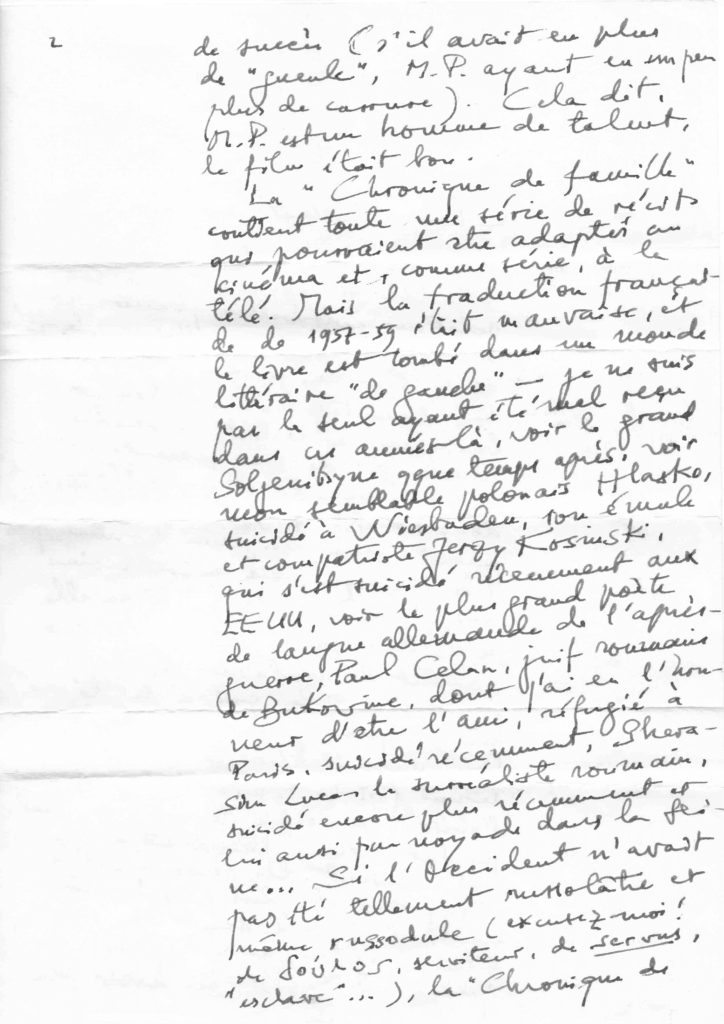 2
de succès (s'il avait en plus
de "gueule", M.P. ayant eu un peu
plus de carrure). Cela dit,
M.P. est un homme de talent,
le film était bon.
La "Chronique de famille"
contient toute une série de récits
qui pourraient être adaptés au
kinéma et, comme série, à la
télé. Mais la traduction françai-
de de 1957-59 était mauvaise, et
le livre est tombé dans un monde
littéraire "de gauche" — je ne suis
pas le seul ayant été mal reçu
dans ces années-là, voir le grand
Soljenitsyne qque temps après, voir
mon semblable polonais Hlasko,
suicidé à Wiesbaden, son émule
et compatriote Jerzy Kosinski,
qui s'est suicidé récemment aux
EEUU, voir le plus grand poète
de langue allemande de l'après-
guerre, Paul Celan, juif roumain
de Bukovine, dont j'ai eu l'hon-
neur d'être l'ami, réfugié à
Paris, suicidé récemment, Ghera-
sim Lucas le surréaliste roumain,
suicidé encore plus récemment et
lui aussi par noyade dans la Sei-
ne... Si l'Occident n'avait
pas été tellement russolâtre et
même russodule (excusez-moi!
de δούλος, serviteur, de servus,
"esclave"...), la "Chronique de